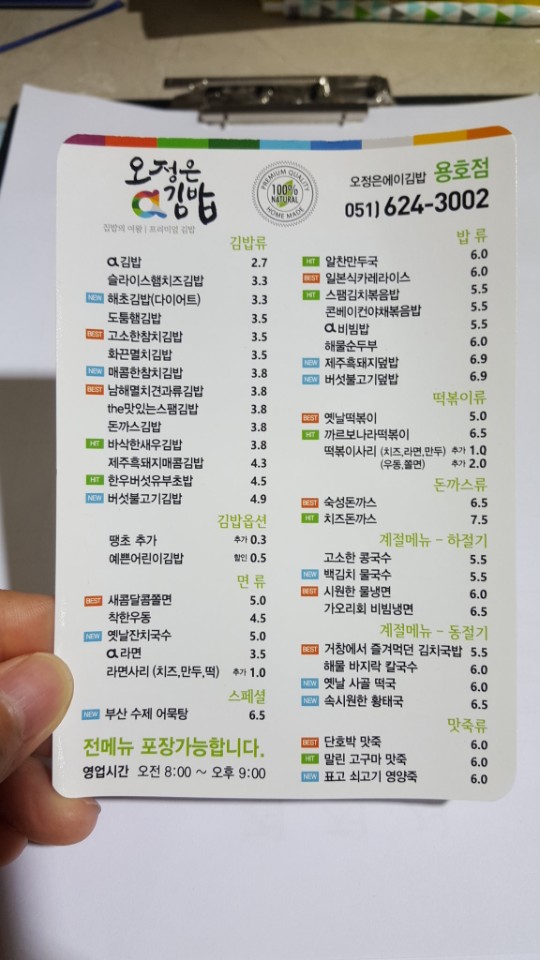 오정은
a김밥
김밥의 여왕 | 프리미엄 김밥
PREMIUM QUALITY
100%
NATURAL
HOME MADE
오정은에이김밥 용호점
051) 624-3002
김밥류
a김밥 2.7
슬라이스햄치즈김밥 3.3
NEW 해초김밥(다이어트) 3.3
도톰햄김밥 3.5
BEST 고소한참치김밥 3.5
화끈멸치김밥 3.5
NEW 매콤한참치김밥 3.8
BEST 남해멸치견과류김밥 3.8
the맛있는스팸김밥 3.8
돈까스김밥 3.8
HIT 바삭한새우김밥 3.8
제주흑돼지매콤김밥 4.3
HIT 한우버섯유부초밥 4.5
NEW 버섯불고기김밥 4.9
김밥옵션
땡초 추가 추가 0.3
예쁜어린이김밥 할인 0.5
면 류
BEST 새콤달콤쫄면 5.0
착한우동 4.5
NEW 옛날잔치국수 5.0
a라면 3.5
라면사리 (치즈,만두,떡) 추가 1.0
스페셜
NEW 부산 수제 어묵탕 6.5
전메뉴 포장가능합니다.
영업시간 오전 8:00 ~ 오후 9:00
밥 류
HIT 알찬만두국 6.0
BEST 일본식카레라이스 6.0
HIT 스팸김치볶음밥 5.5
콘베이컨야채볶음밥 5.5
a비빔밥 5.5
해물순두부 6.0
NEW 제주흑돼지덮밥 6.9
NEW 버섯불고기덮밥 6.9
떡볶이류
BEST 옛날떡볶이 5.0
HIT 까르보나라떡볶이 6.5
떡볶이사리 (치즈,라면,만두) 추가 1.0
(우동,쫄면) 추가 2.0
돈까스류
BEST 숙성돈까스 6.5
HIT 치즈돈까스 7.5
계절메뉴 - 하절기
고소한 콩국수 5.5
NEW 백김치 물국수 5.5
BEST 시원한 물냉면 6.0
가오리회 비빔냉면 6.5
계절메뉴 - 동절기
BEST 거창에서 즐겨먹던 김치국밥 5.5
해물 바지락 칼국수 6.0
NEW 옛날 사골 떡국 6.0
NEW 속시원한 황태국 6.5
맛죽류
BEST 단호박 맛죽 6.0
HIT 말린 고구마 맛죽 6.0
NEW 표고 쇠고기 영양죽 6.0